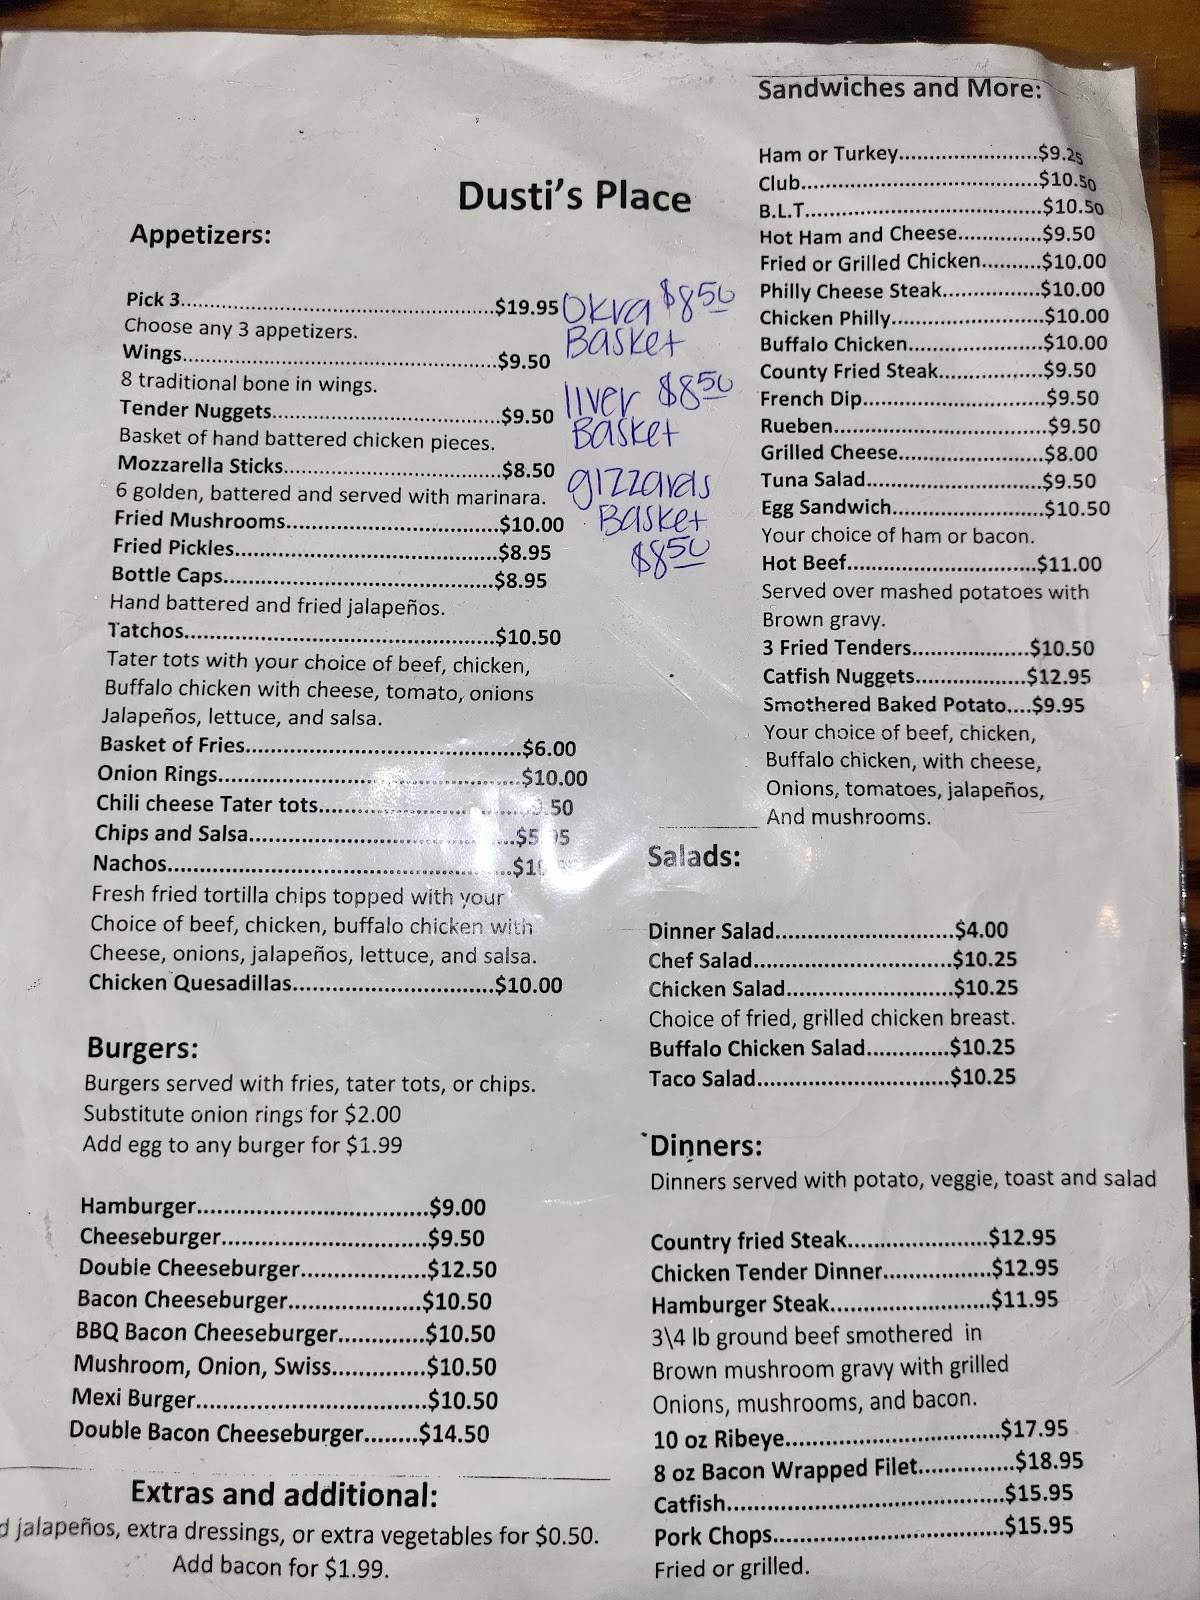 Dusti's Place
Appetizers:
Pick 3..................................................$19.95
Choose any 3 appetizers.
Wings....................................................$9.50
8 traditional bone in wings.
Tender Nuggets.....................................$9.50
Basket of hand battered chicken pieces.
Mozzarella Sticks...................................$8.50
6 golden, battered and served with marinara.
Fried Mushrooms..................................$10.00
Fried Pickles...........................................$8.95
Bottle Caps............................................$8.95
Hand battered and fried jalapeños.
Tatchos..................................................$10.50
Tater tots with your choice of beef, chicken,
Buffalo chicken with cheese, tomato, onions
Jalapeños, lettuce, and salsa.
Basket of Fries............................................$6.00
Onion Rings................................................$10.00
Chili cheese Tater tots................................ .50
Chips and Salsa..........................................$5 95
Nachos.......................................................$1
Fresh fried tortilla chips topped with your
Choice of beef, chicken, buffalo chicken with
Cheese, onions, jalapeños, lettuce, and salsa.
Chicken Quesadillas................................$10.00
Okra $8.50
Basket
liver $8.50
Basket
gizzards
Basket
$8.50
Burgers:
Burgers served with fries, tater tots, or chips.
Substitute onion rings for $2.00
Add egg to any burger for $1.99
Hamburger.....................................$9.00
Cheeseburger.................................$9.50
Double Cheeseburger....................$12.50
Bacon Cheeseburger.....................$10.50
BBQ Bacon Cheeseburger..............$10.50
Mushroom, Onion, Swiss...............$10.50
Mexi Burger.....................................$10.50
Double Bacon Cheeseburger........$14.50
Extras and additional:
d jalapeños, extra dressings, or extra vegetables for $0.50.
Add bacon for $1.99.
Sandwiches and More:
Ham or Turkey......................$9.25
Club......................................$10.50
B.L.T......................................$10.50
Hot Ham and Cheese.............$9.50
Fried or Grilled Chicken..........$10.00
Philly Cheese Steak................$10.00
Chicken Philly.........................$10.00
Buffalo Chicken......................$10.00
County Fried Steak.................$9.50
French Dip..............................$9.50
Rueben...................................$9.50
Grilled Cheese........................$8.00
Tuna Salad.............................$9.50
Egg Sandwich.........................$10.50
Your choice of ham or bacon.
Hot Beef...............................$11.00
Served over mashed potatoes with
Brown gravy.
3 Fried Tenders...................$10.50
Catfish Nuggets..................$12.95
Smothered Baked Potato....$9.95
Your choice of beef, chicken,
Buffalo chicken, with cheese,
Onions, tomatoes, jalapeños,
And mushrooms.
Salads:
Dinner Salad.............................$4.00
Chef Salad................................$10.25
Chicken Salad...........................$10.25
Choice of fried, grilled chicken breast.
Buffalo Chicken Salad.............$10.25
Taco Salad...............................$10.25
Dinners:
Dinners served with potato, veggie, toast and salad
Country fried Steak.......................$12.95
Chicken Tender Dinner.................$12.95
Hamburger Steak..........................$11.95
3\4 lb ground beef smothered in
Brown mushroom gravy with grilled
Onions, mushrooms, and bacon.
10 oz Ribeye...................................$17.95
8 oz Bacon Wrapped Filet...............$18.95
Catfish.............................................$15.95
Pork Chops.....................................$15.95
Fried or grilled.